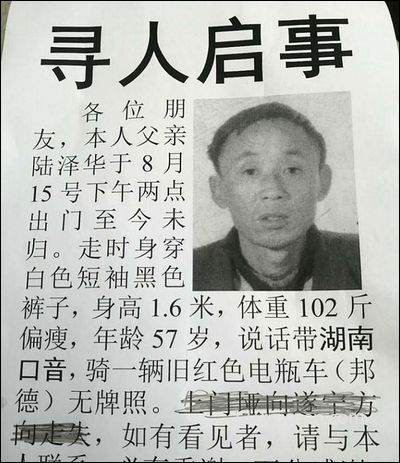 寻人启事
各位朋
友，本人父亲
陆泽华于8月
15号下午两点
出门至今未
归。走时身穿
白色短袖黑色
裤子，身高1.6米，体重102斤
偏瘦，年龄57岁，说话带湖南
口音，骑一辆旧红色电瓶车（邦
德）无牌照。土门垭向遂宁方
向走失，如有看见者，请与本